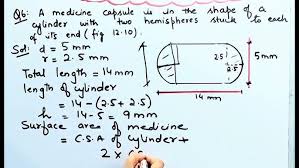 Q6: A medicine capsule is in the shape of a
cylinder with two hemispheres stuck to each
of its end (fig 12.10).
Sol: d = 5 mm
r = 2.5 mm
Total length = 14 mm
length of cylinder
= 14 - (2.5 + 2.5)
h = 14 - 5 = 9 mm
Surface area of medicine
= C.S.A of cylinder +
2 ×
2.5
2.5
5 mm
14 mm